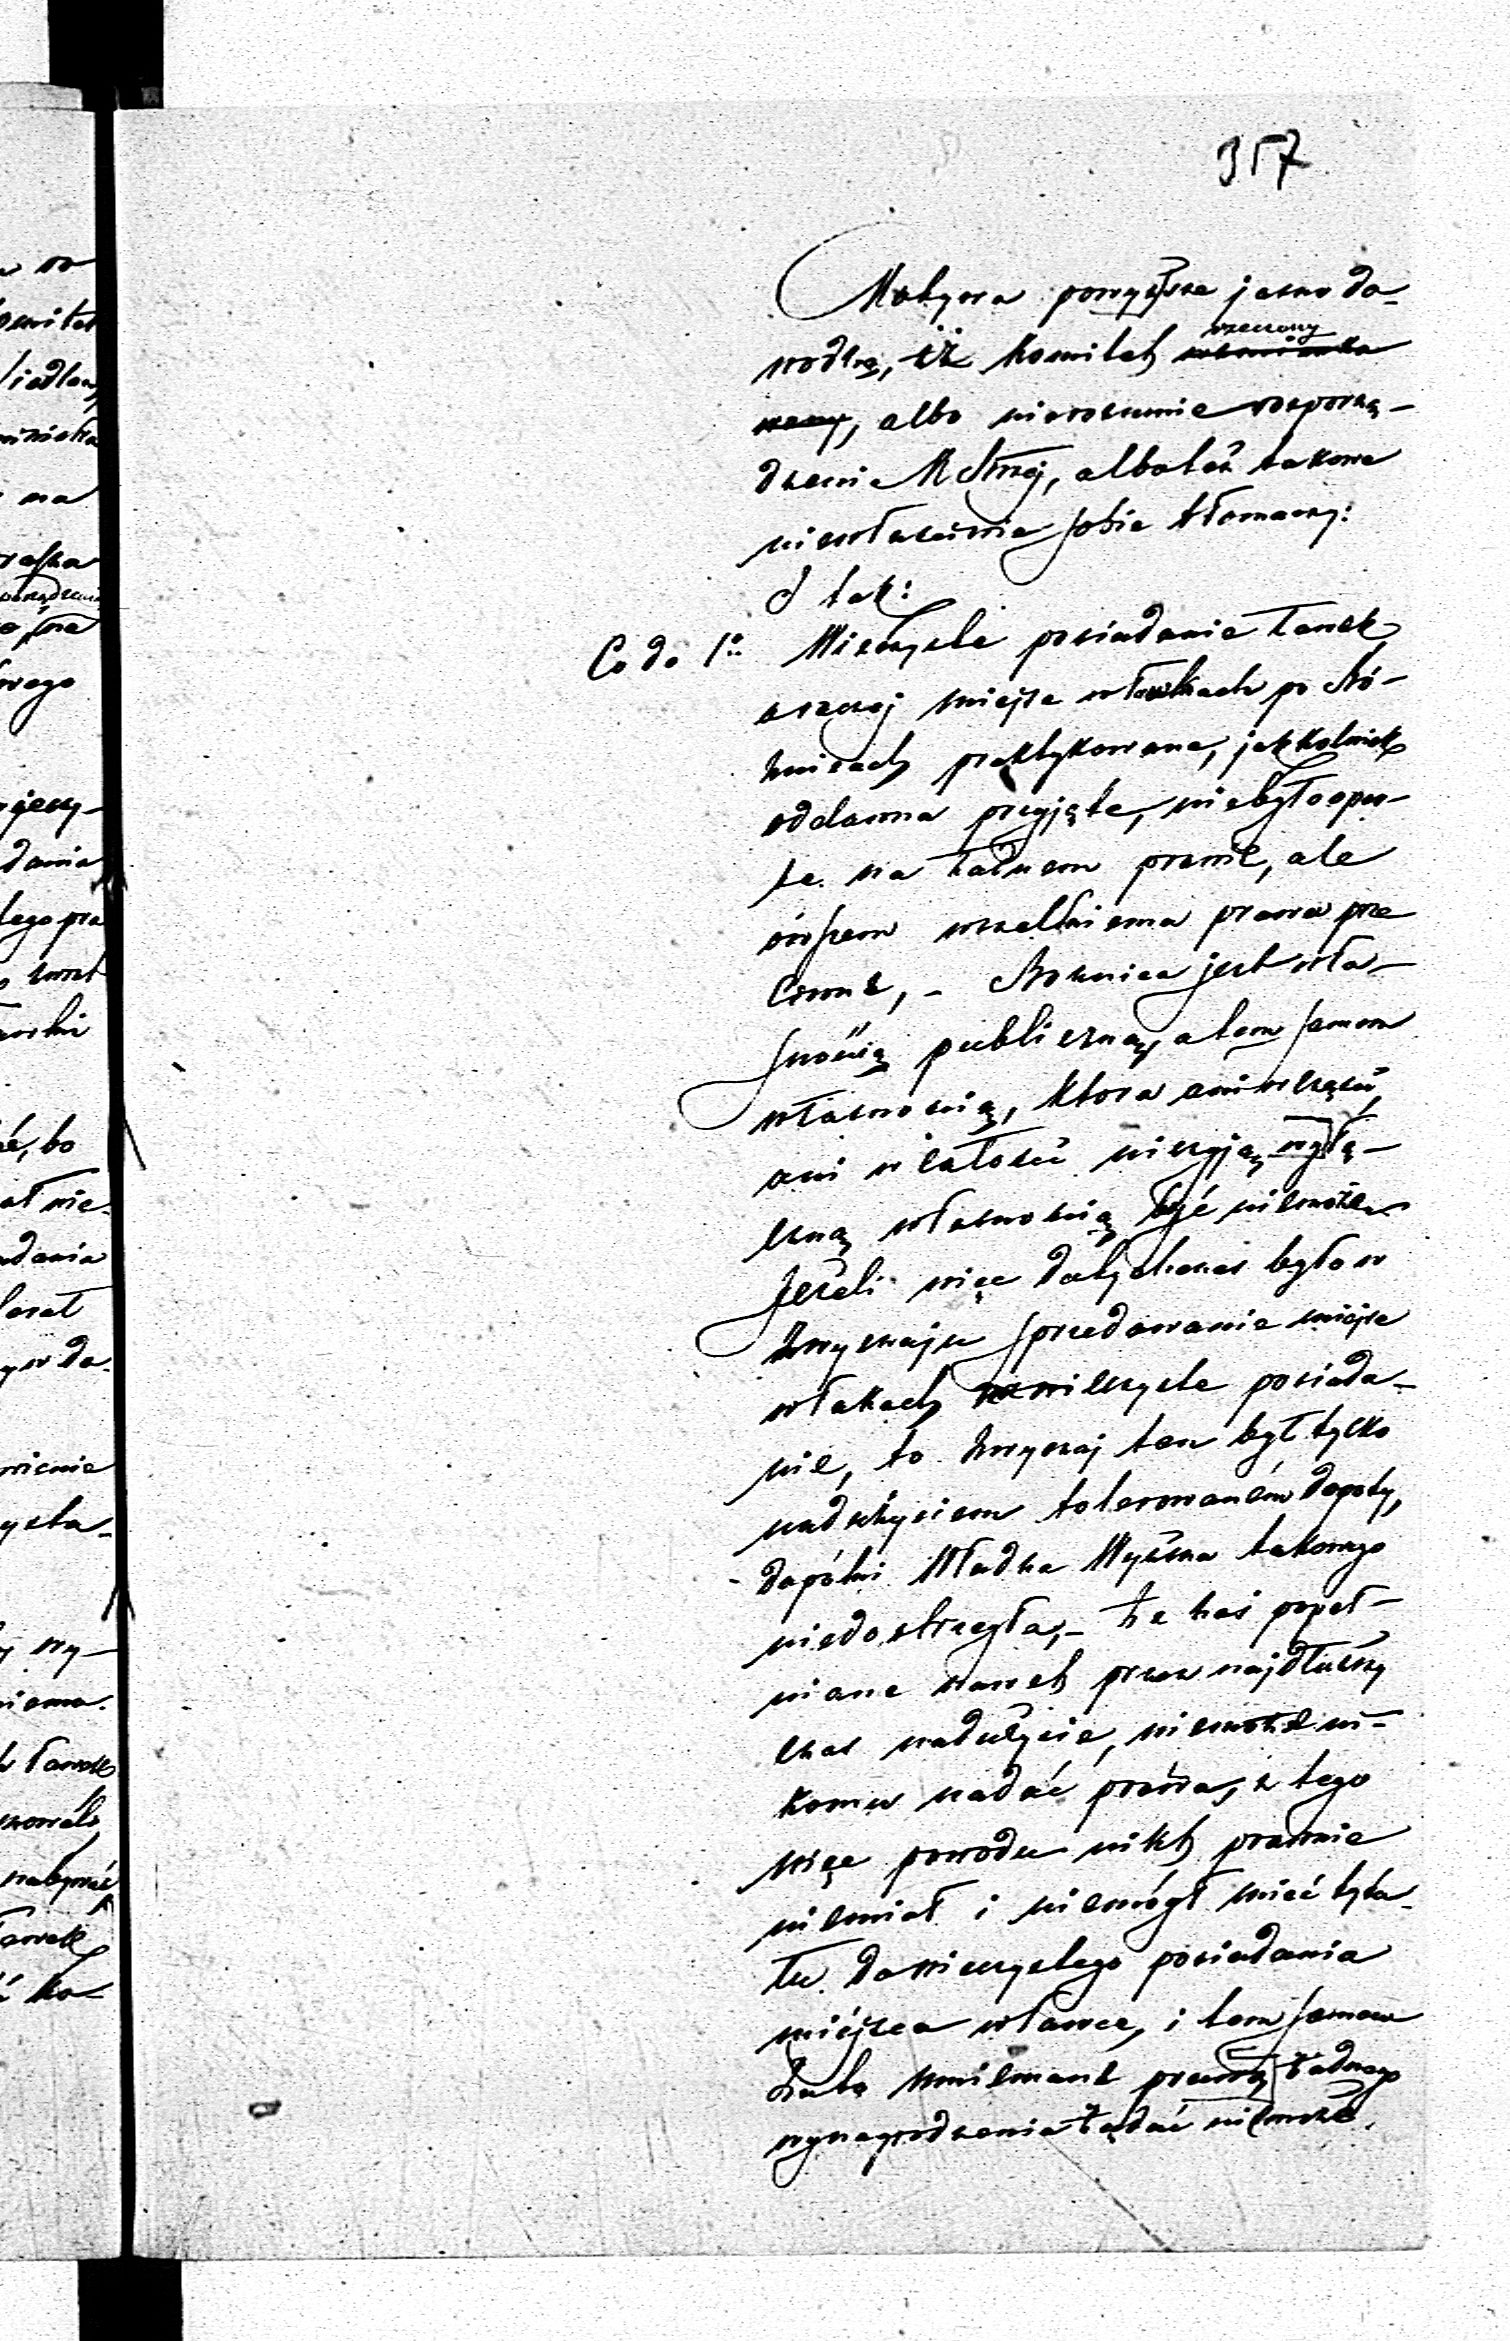 357
Motywa powyższe jasno do-
wodzą, iż Komitet rzeczony wzmianko
wany, albo nierozumie rozporzą-
dzenia, albo też takowe
niewłaściwie sobie tłomaczy:
I tak:
Co do 1o Wieczyste posiadanie Ławek,
a raczej miejsc w Ławkach po Bó-
żnicach praktykowane, jakkolwiek
oddawna przyjęte, niebyło opar-
te na żadnem prawie, ale
owszem wszelkiemu prawu prze
ciwne, - Bożnica jest wła-
snością publiczną, a tem samem
własnością, która ani w części,
ani w całości niczyją wyłą-
czną własnością być niemoże
Jeżeli więc dotychczas było w
zwyczaju sprzedawanie miejsc
w Ławkach wieczyste posiada-
nie, to zwyczaj ten był tylko
nadużyciem tolerowaném dopoty,
dopóki Władza Wyższa takowego
niedostrzegła, - że zaś popeł-
niane nawet przez najdłuższy
czas nadużycie, niemoże ni-
komu nadać prawa, z tego
więc powodu nikt prawnie
niemiał i niemógł mieć tytu-
łu do wieczystego posiadania
miéjsca w Ławce, i tem samem
za wynagrodzenia żądać niemoże.